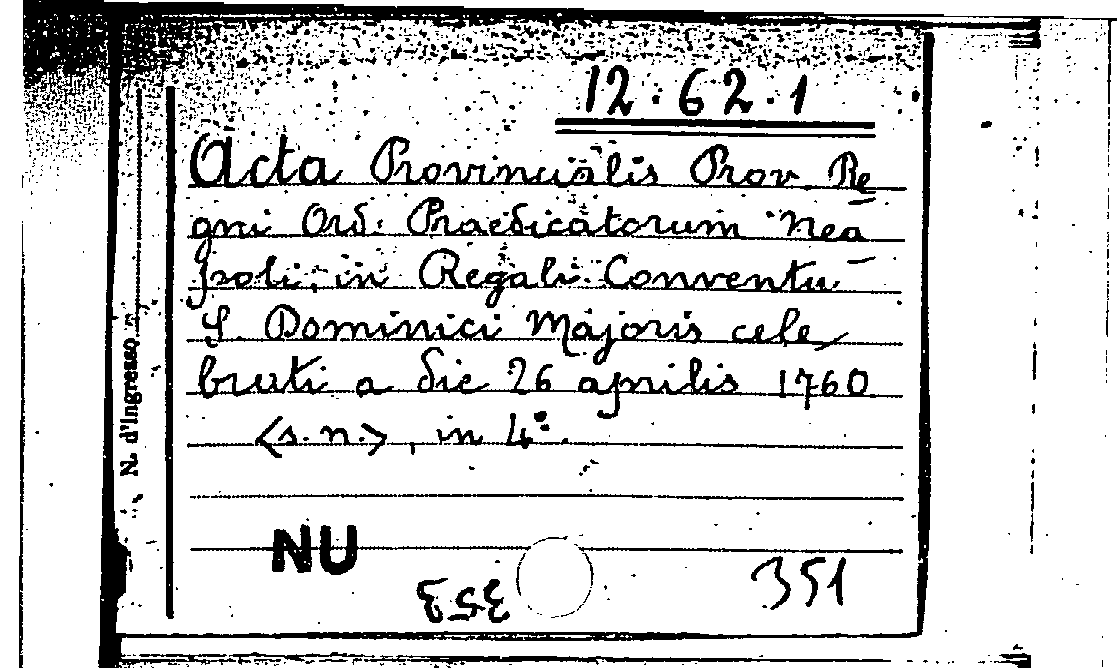 12.62.1
Acta Provincialis Prov. Re
gni Ord. Praedicatorum Nea
poli, in Regali Conventu
S. Dominici Majoris cele
brati a die 26 aprilis 1760
<s.n.>, in 4°.
N. d'Ingresso
NU
353
351